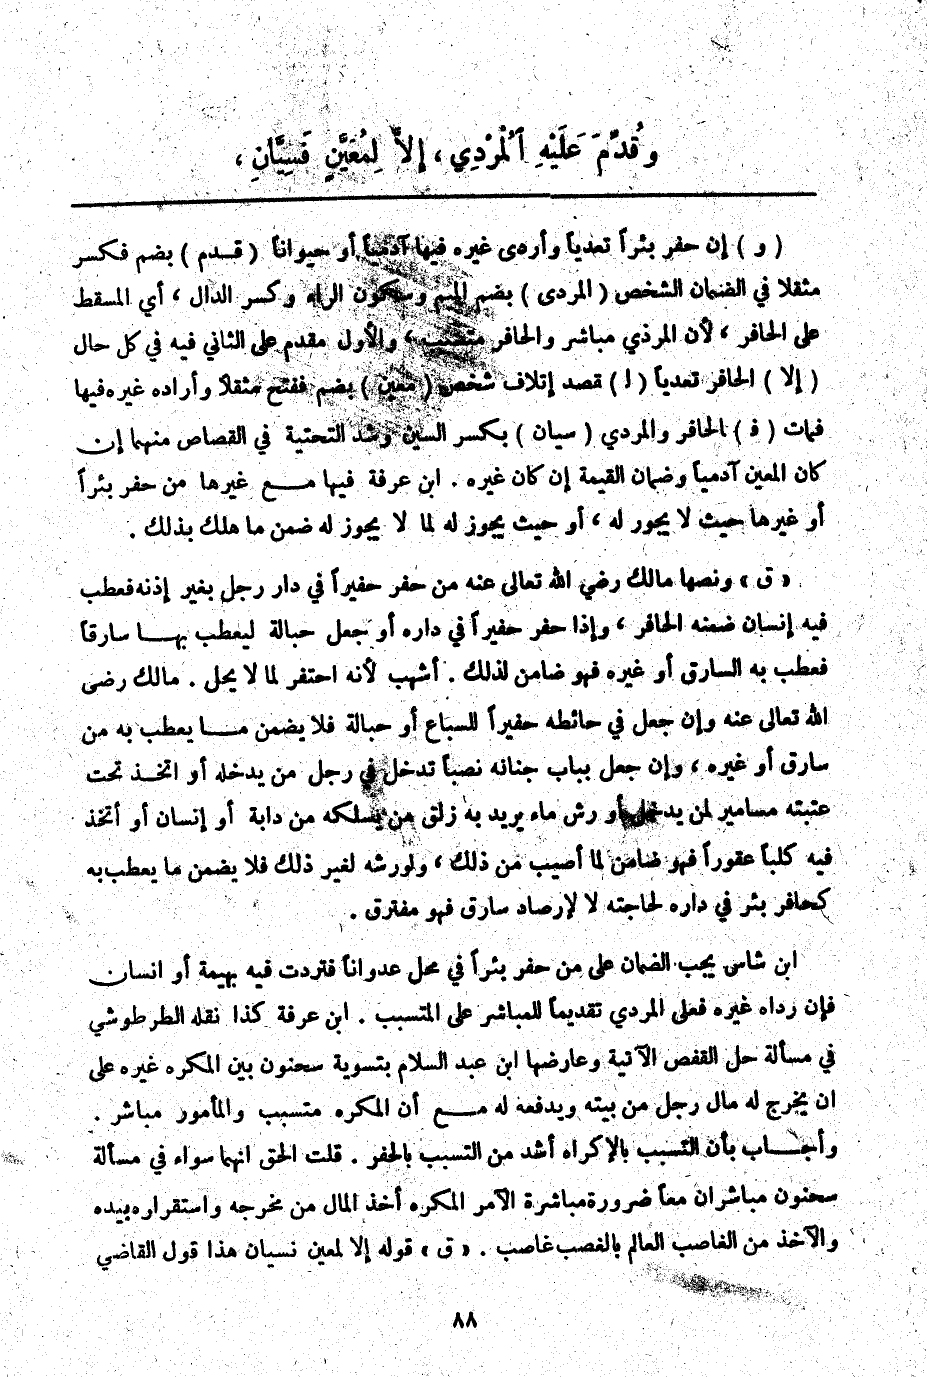 وَقُدِّمَ عَلَيْهِ ٱلْمُرْدِي ، إِلاَّ لِمُعَيَّنٍ فَسِيَّانِ ،
( و ) إن حفر بئراً تعدياً وأردى غيره فيها آدمياً أو حيواناً ( قـدم ) بضم فكسر
مثقلا في الضمان الشخص ( المردى ) بضم الميم وسكون الراء وكسر الدال ، أي المسقط
على الحافر ، لأن المرذي مباشر والحافر متسبب ، والأول مقدم على الثاني فيه في كل حال
( إلا ) الحافر تعدياً ( ا ) قصد إتلاف شخص ( معين ) بضم ففتح مثقلاً وأراده غيره فيها
فمات ( ف ) الحافر والمردي ( سيان ) بكسر السين وشد التحتية في القصاص منهما إن
كان المعين آدمياً وضمان القيمة إن كان غيره . ابن عرفة فيها مـــع غيرها من حفر بئراً
أو غيرها حيث لا يجور له ، أو حيث يجوز له لما لا يجوز له ضمن ما هلك بذلك .
« ق » ونصها مالك رضي الله تعالى عنه من حفر حفيراً في دار رجل بغير إذنه فعطب
فيه إنسان ضمنه الحافر ، وإذا حفر حفيراً في داره أو جعل حبالة ليعطب بهـــا سارقاً
فعطب به السارق أو غيره فهو ضامن لذلك . أشهب لأنه احتفر لما لا يحل . مالك رضى
الله تعالى عنه وإن جعل في حائطه حفيراً للسباع أو حبالة فلا يضمن مـــا يعطب به من
سارق أو غيره ، وإن جعل بباب جنانه نصباً تدخل في رجل من يدخله أو اتخـذ تحت
عتبته مسامير لمن يدخل أو رش ماء يريد به زلق من يسلكه من دابة أو إنسان أو أتخذ
فيه كلباً عقوراً فهو ضامن لما أصيب من ذلك ، ولورشه لغير ذلك فلا يضمن ما يعطب به
كحافر بئر في داره لحاجته لا لإرصاد سارق فهو مفترق .
ابن شاس يجب الضمان على من حفر بئراً في محل عدواناً فتردت فيه بهيمة أو انسان
فإن رداه غيره فعلى المردي تقديماً للمباشر على المتسبب . ابن عرفة كذا نقله الطرطوشي
في مسألة حل القفص الآتية وعارضها ابن عبد السلام بتسوية سحنون بين المكره غيره على
ان يخرج له مال رجل من بيته ويدفعه له مـــع أن المكره متسبب والمأمور مباشر .
وأجـــاب بأن التسبب بالإكراه أشد من التسبب بالحفر . قلت الحق انهما سواء في مسألة
سحنون مباشران معاً ضرورة مباشرة الآمر المكره أخذ المال من مخرجه واستقراره بيده
والآخذ من الغاصب العالم بالغصب غاصب . « ق » قوله إلا لمعين نسيان هذا قول القاضي
٨٨